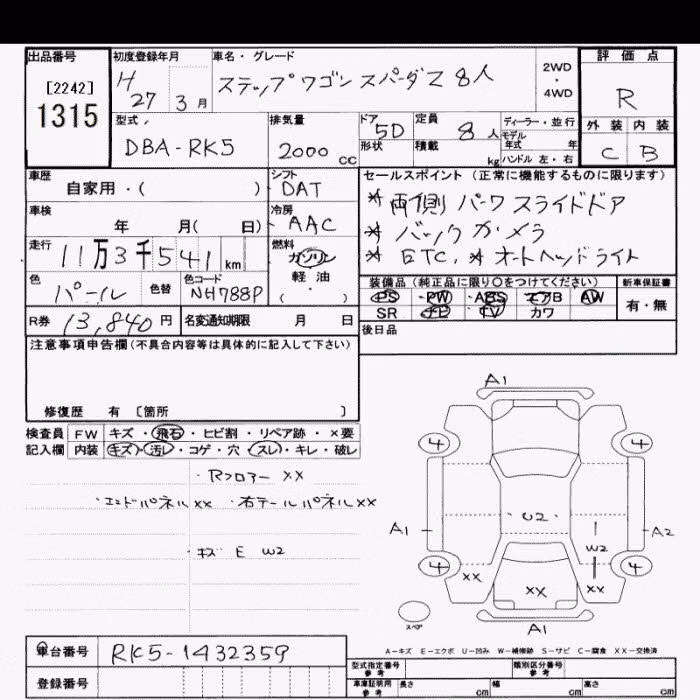 出品番号
[2242]
1315
初度登録年月
H
27 3月
車名・グレード
ステップワゴン スパーダ Z 8人
2WD
・
4WD
評価点
R
外装 内装
C B
型式
DBA-RK5
排気量
2000 cc
ドア
5D
形状
定員
8 人
積載 kg
ディーラー・並行
モデル
年式 年
ハンドル 左・右
車歴
自家用・( )
シフト
DAT
車検
年 月( 日)
冷房
AAC
走行
11万3千541 km
燃料
ガソリン
軽油
( ・ )
色
パール
色替
色コード
NH788P
R券 13,840円
名変通知期限 月 日
セールスポイント (正常に機能するものに限ります)
* 両側パワースライドドア
* バックカメラ
* ETC, * オートヘッドライト
装備品(純正品に限り○をつけてください)
新車保証書
PS PW ABS エアB AW
有・無
SR ナビ TV カワ
後日品
注意事項申告欄(不具合内容等は具体的に記入して下さい)
修復歴 有 〔箇所 〕
検査員 FW キズ・飛石・ヒビ割・リペア跡・×要
記入欄 内装 キズ・汚レ・コゲ・穴・スレ・キレ・破レ
・Rフロアー XX
・エンドパネル XX ・右テールパネル XX
・キズ E W2
A1
4 4
U2
A1 A2
W2
4 4
XX XX XX
A1
スペア
A-キズ E-エクボ U-凹み W-補修跡 S-サビ C-腐食 XX-交換済
車台番号 RK5-1432359
登録番号
型式指定番号
参考
類別区分番号
参考
車庫証明用
参考
長さ cm 幅 cm 高さ cm